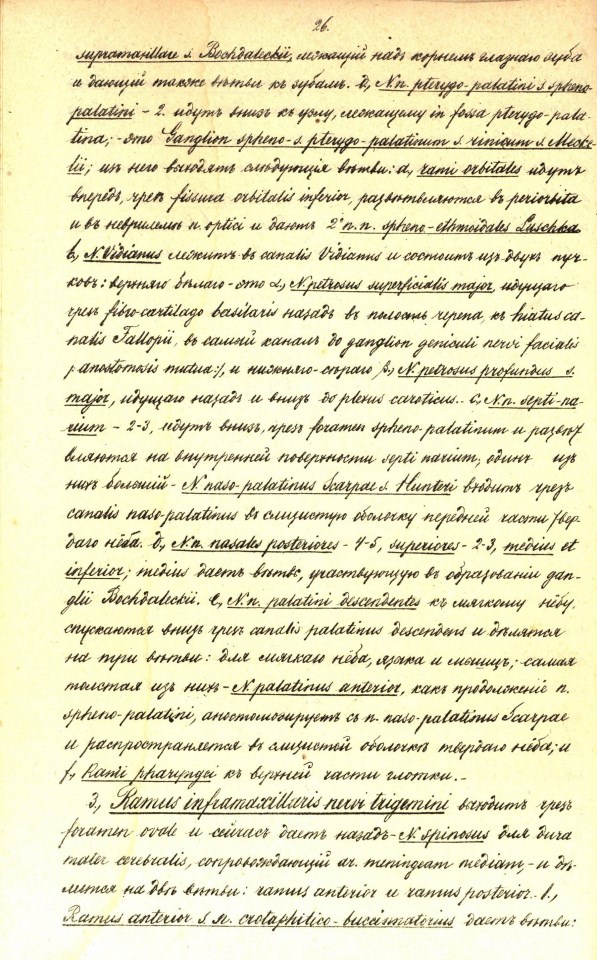 26.
supramaxillare s. Bochdaleckii, лежащій надъ корнемъ глазнаго зуба
и дающій также вѣтви къ зубамъ. b, N.n. pterygo-palatini s. spheno-
palatini – 2. идутъ внизъ къ узлу, лежащему in fossa pterygo-pala-
tina; – это Ganglion spheno- s. pterygo-palatinum s. rinicum s. Mecke-
lii; изъ него выходятъ слѣдующія вѣтви: a, rami orbitales идутъ
впередъ, чрезъ fissura orbitalis inferior, развѣтвляются въ periorbita
и въ невриллемѣ n. optici и даютъ 2 n.n. spheno-ethmoidales Luschka
b, N. Vidianus лежитъ въ canalis Vidianus и состоитъ изъ двухъ пуч-
ковъ: верхняго бѣлаго – это α, N. petrosus superficialis major, идущаго
чрезъ fibro-cartilago basilaris назадъ въ полость черепа, къ hiatus ca-
nalis Fallopii, въ самый каналъ до ganglion geniculi nervi facialis
/:anostomosis mutua:/, и нижняго-сѣраго β, N. petrosus profundus s.
major, идущаго назадъ и внизъ до plexus caroticus. – c, N.n. septi-na-
rium – 2-3, идутъ внизъ, чрезъ foramen spheno-palatinum и развѣт-
вляются на внутренней поверхности septi narium; одинъ изъ
нихъ большій – N. naso-palatinus Scarpae s. Hunteri входитъ чрезъ
canalis naso-palatinus въ слизистую оболочку передней части твер-
даго нёба. d, N.n. nasales posteriores – 4-5, superiores – 2-3, medius et
inferior; medius даетъ вѣтвь, участвующую въ образованіи gan-
glii Bochdaleckii. e, N.n. palatini descendentes къ мягкому нёбу,
спускаются внизъ чрезъ canalis palatinus descendens и дѣлятся
на три вѣтви: для мягкаго нёба, язычка и мышцъ; – самая
толстая изъ нихъ – N. palatinus anterior, какъ продолженіе n.
spheno-palatini, аностомозируетъ съ n. naso-palatinus Scarpae
и распространяется въ слизистой оболочкѣ твердаго нёба; и
f, Rami pharyngei къ верхней части глотки. –
3, Ramus inframaxillaris nervi trigemini выходитъ чрезъ
foramen ovale и сейчасъ даетъ назадъ – N. spinosus для dura
mater cerebralis, сопровождающій ar. meningeam mediam, – и дѣ-
лится на двѣ вѣтви: ramus anterior и ramus posterior. – 1,
Ramus anterior s. n. crotaphitico-buccinatorius даетъ вѣтви: